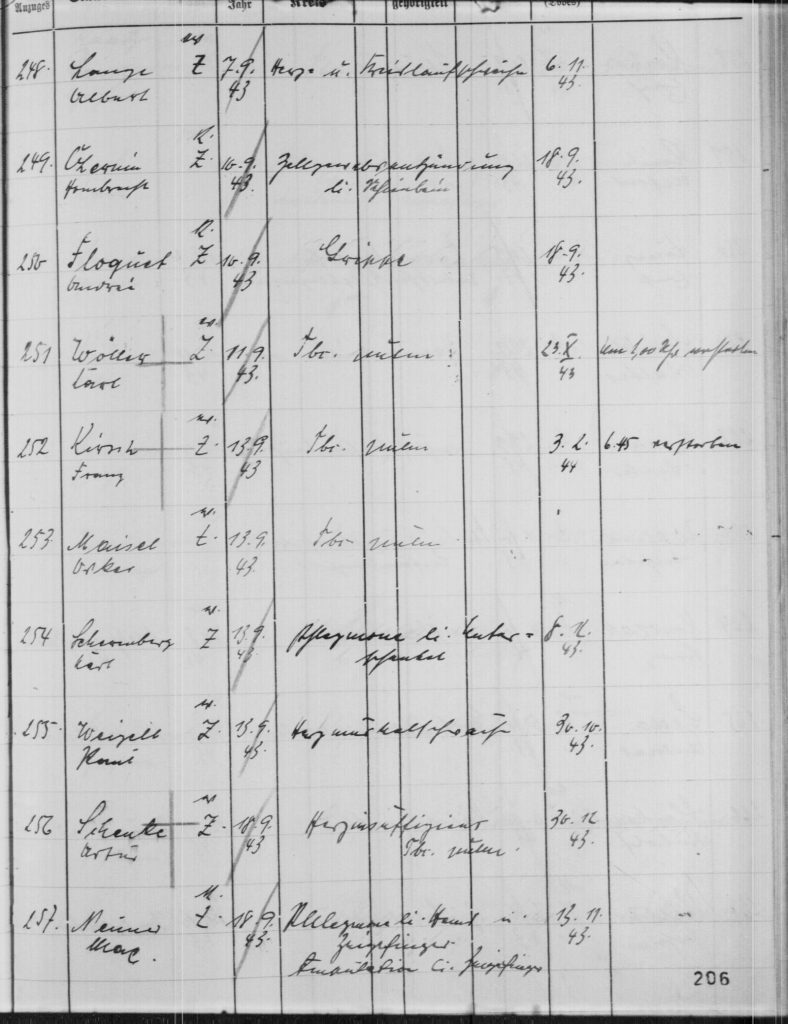 Anzuges
Jahr
Kreis
gehörigkeit
(Todes)
w.
248. Lange Z 7.9. Herz- u. Kreislaufschwäche 6. 11.
Albert 43 43.
R.
249. Z. 10.9. Zellgewebsentzündung 18.9.
43. li. 43.
R.
250 Floquet Z 10.9. Grippe 18.9.
43 43.
w.
251 Wöller Z. 11.9. Tbc. pulm. 23. X. um 1,00 Uhr verstorben
Carl 43. 43
w.
252 Kirsch Z. 13.9. Tbc. pulm 3. 2. 6.45 verstorben
Franz 43 44
w.
253. Maisel Z. 13.9. Tbc. pulm
Oskar 43.
w.
254 Z 13.9. Phlegmone li. Unter- 8. 12.
Karl 43. schenkel 43.
w.
255. Z. 13.9. Herzmuskelschwäche 30. 10.
43. 43.
w
256 Schenke Z. 18.9. Herzinsuffizienz 30. 12
Artur 43 Tbc. pulm. 43.
257. Z. 18.9. Phlegmone li. Hand u. 13. 11.
Max. 43. Zeigefinger 43.
Amputation li. Zeigefinger
206